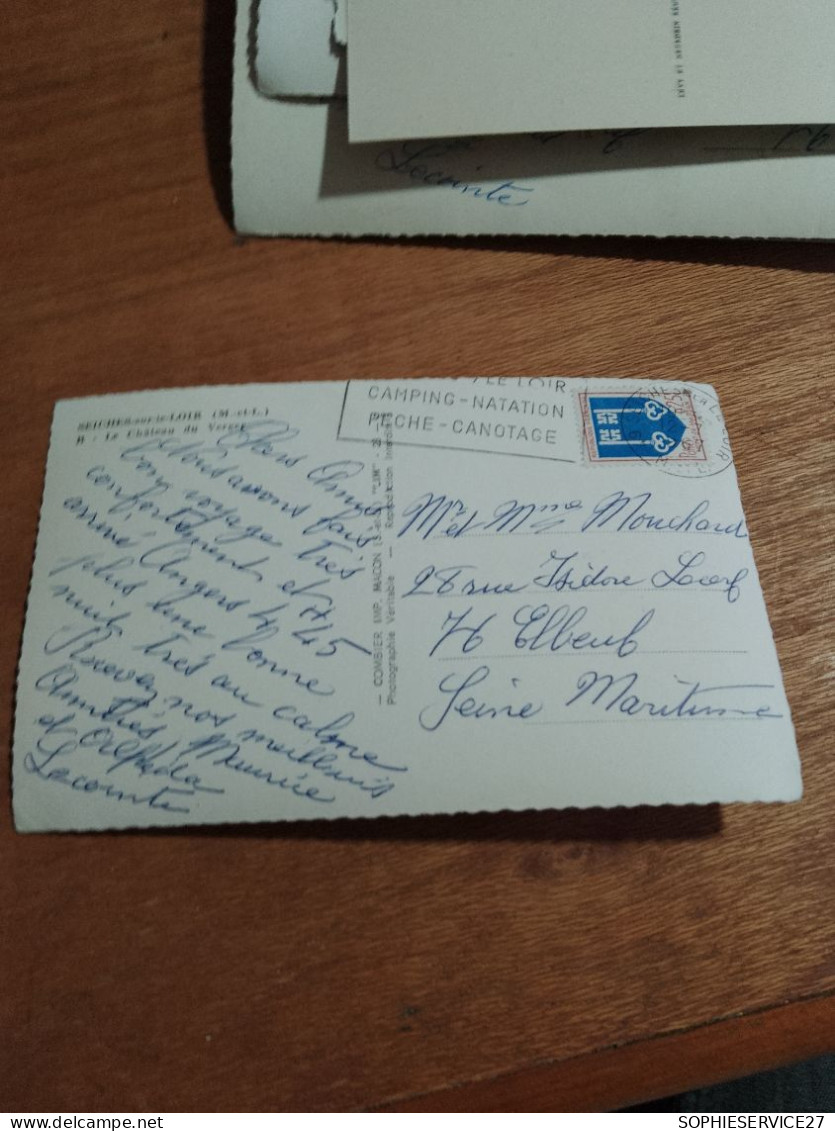 Lecointe
SEICHES-sur-le-LOIR (M.-et-L.)
B - Le Château du Verger
/LE LOIR
CAMPING-NATATION
PÊCHE-CANOTAGE
Chers Amis
Nous avons fait
bon voyage très
confortement et
arrivé Angers 4 h 45
plus une bonne
nuit très au calme
Recevez nos meilleurs
Amitiés Maurice
et
Lecointe
— COMBIER IMP. MACON (S.-et-L.) "CIM" —
Photographie Véritable — Reproduction Interdite
Mr et Mme Mouchard
28 rue Isidore Lecerf
76 Elbeuf
Seine Maritime
SOPHIESERVICE27